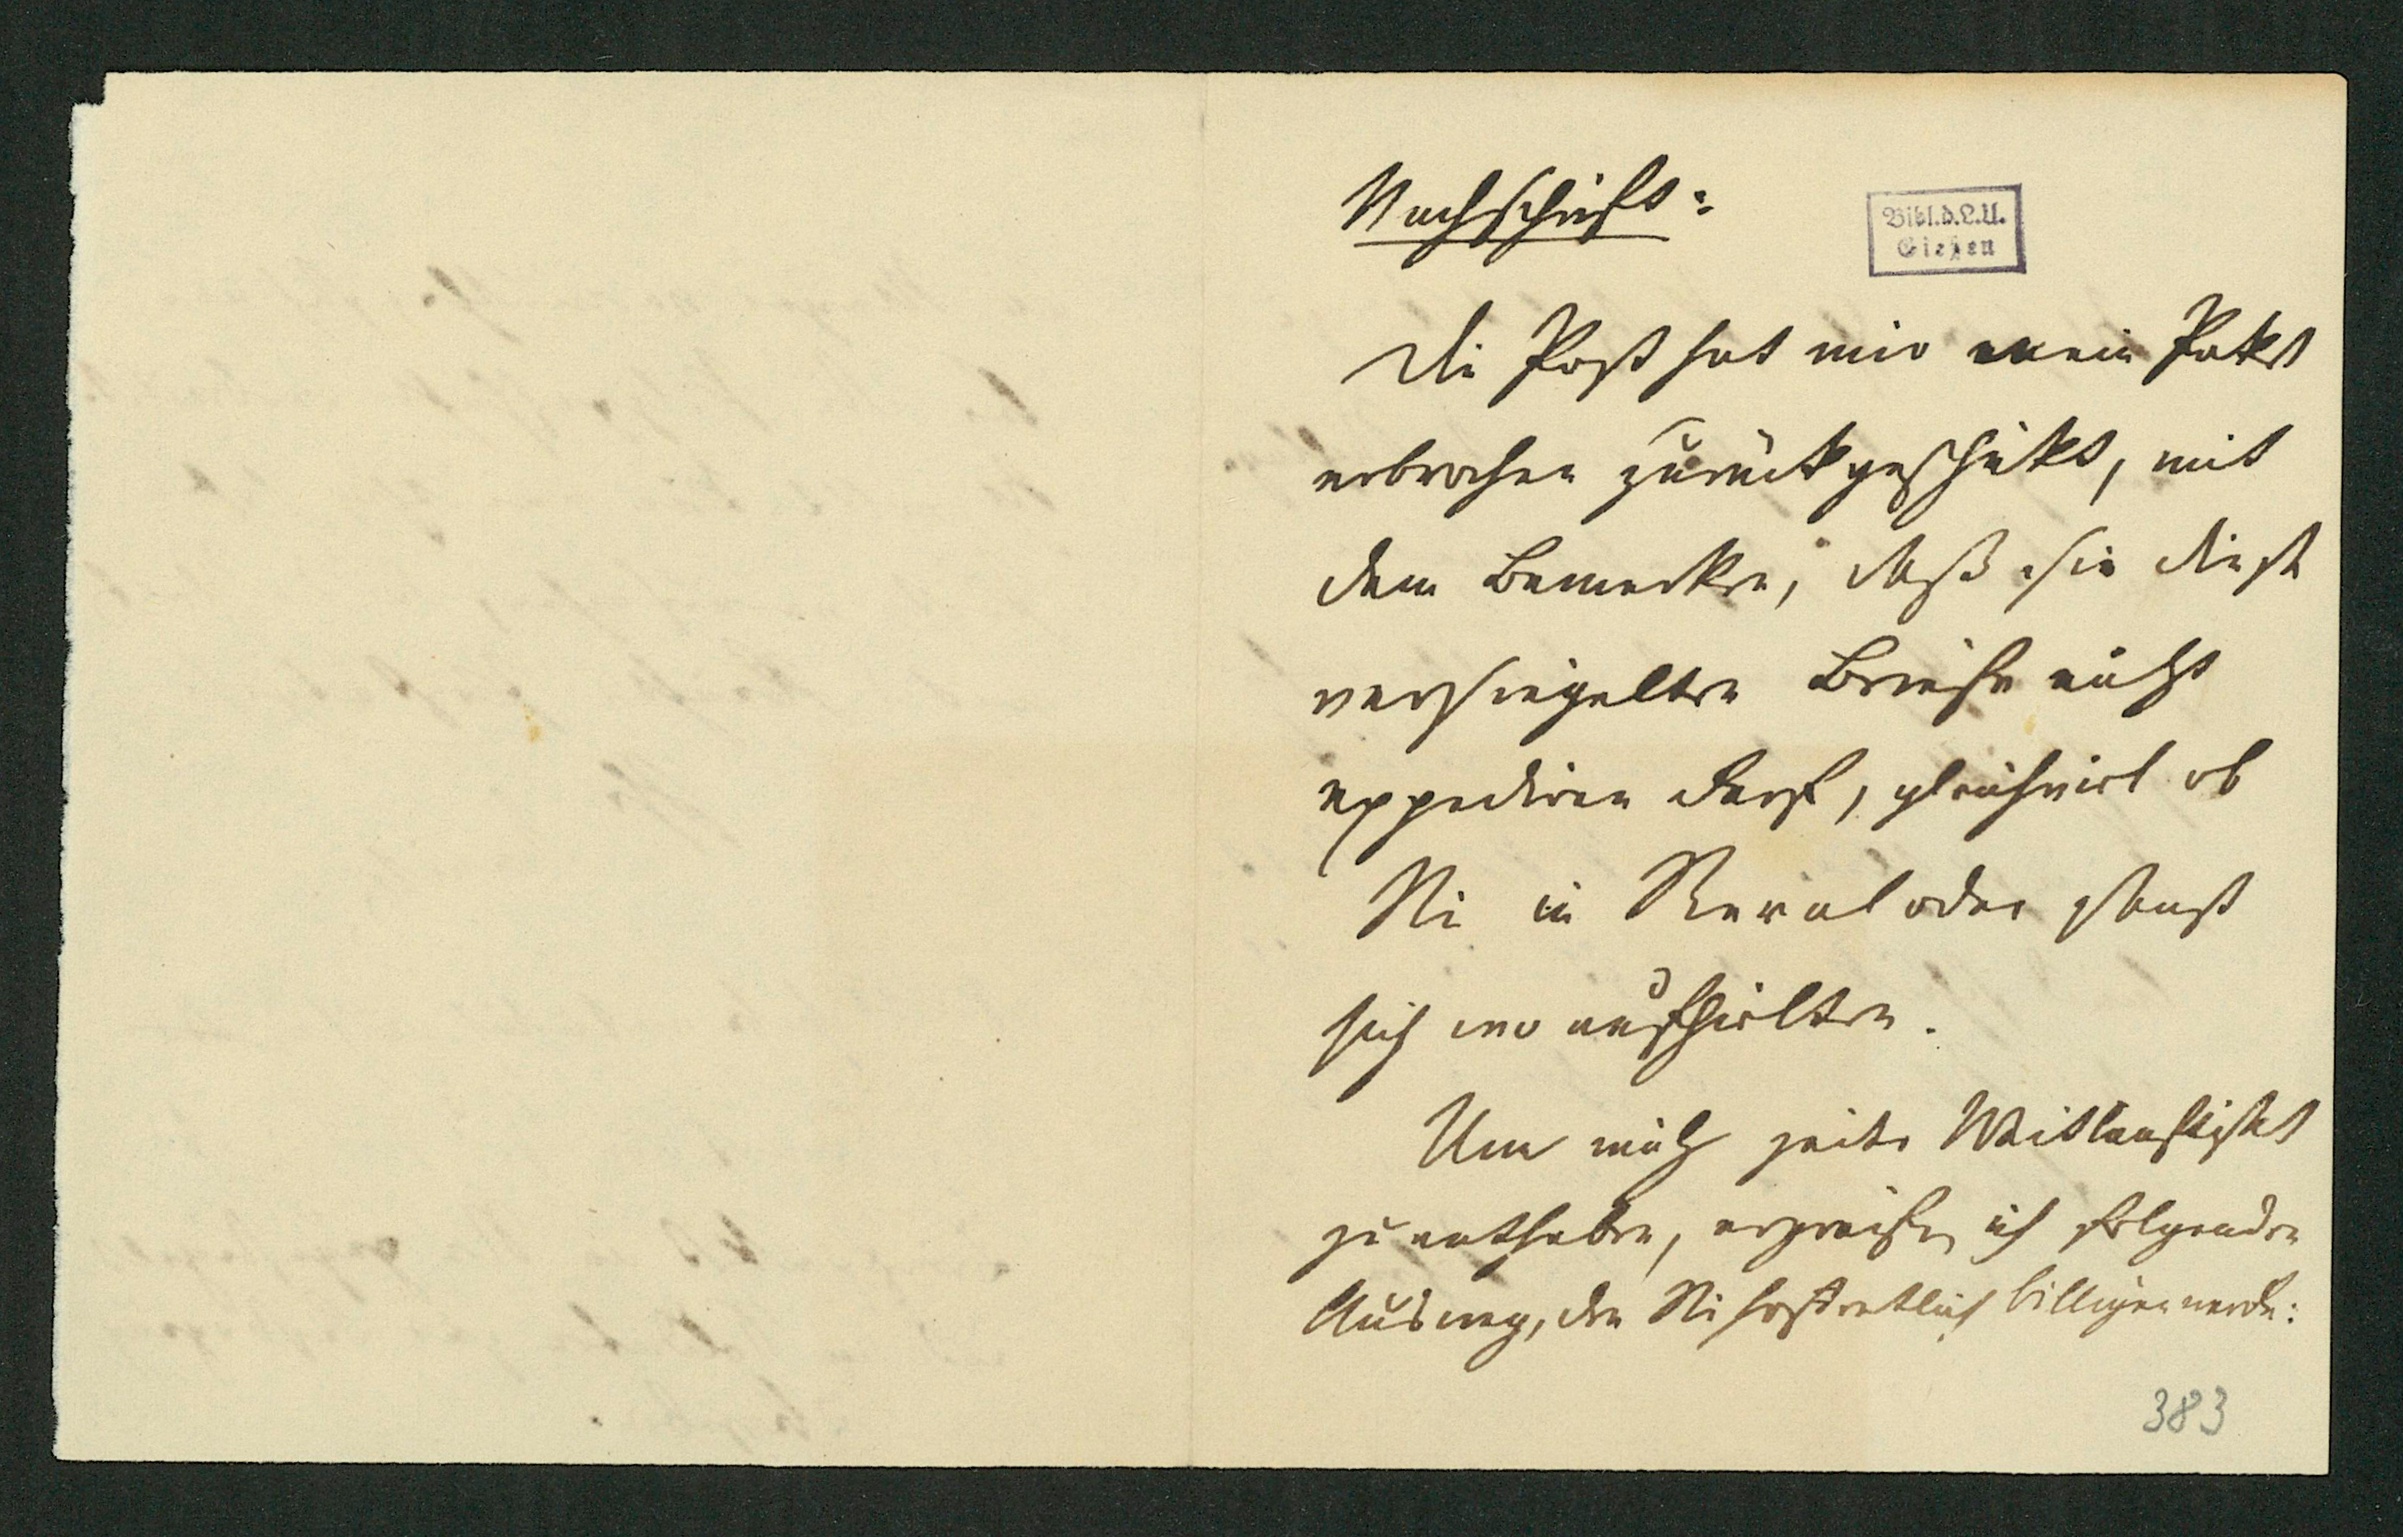 Nachschrift:
Bibl. d. L. U.
Gießen
Die Post hat mir mein Paket
erbrochen zurückgeschickt, mit
dem Bemerken, daß sie diese
versiegelten Briefe nicht
expediren darf, gleichviel ob
Sie in Reval oder sonst
sich wo aufhielten.
Um mich jeder Weitläufigkeit
zu entheben, ergreife ich folgenden
Ausweg, den Sie hoffentlich billigen werden:
383